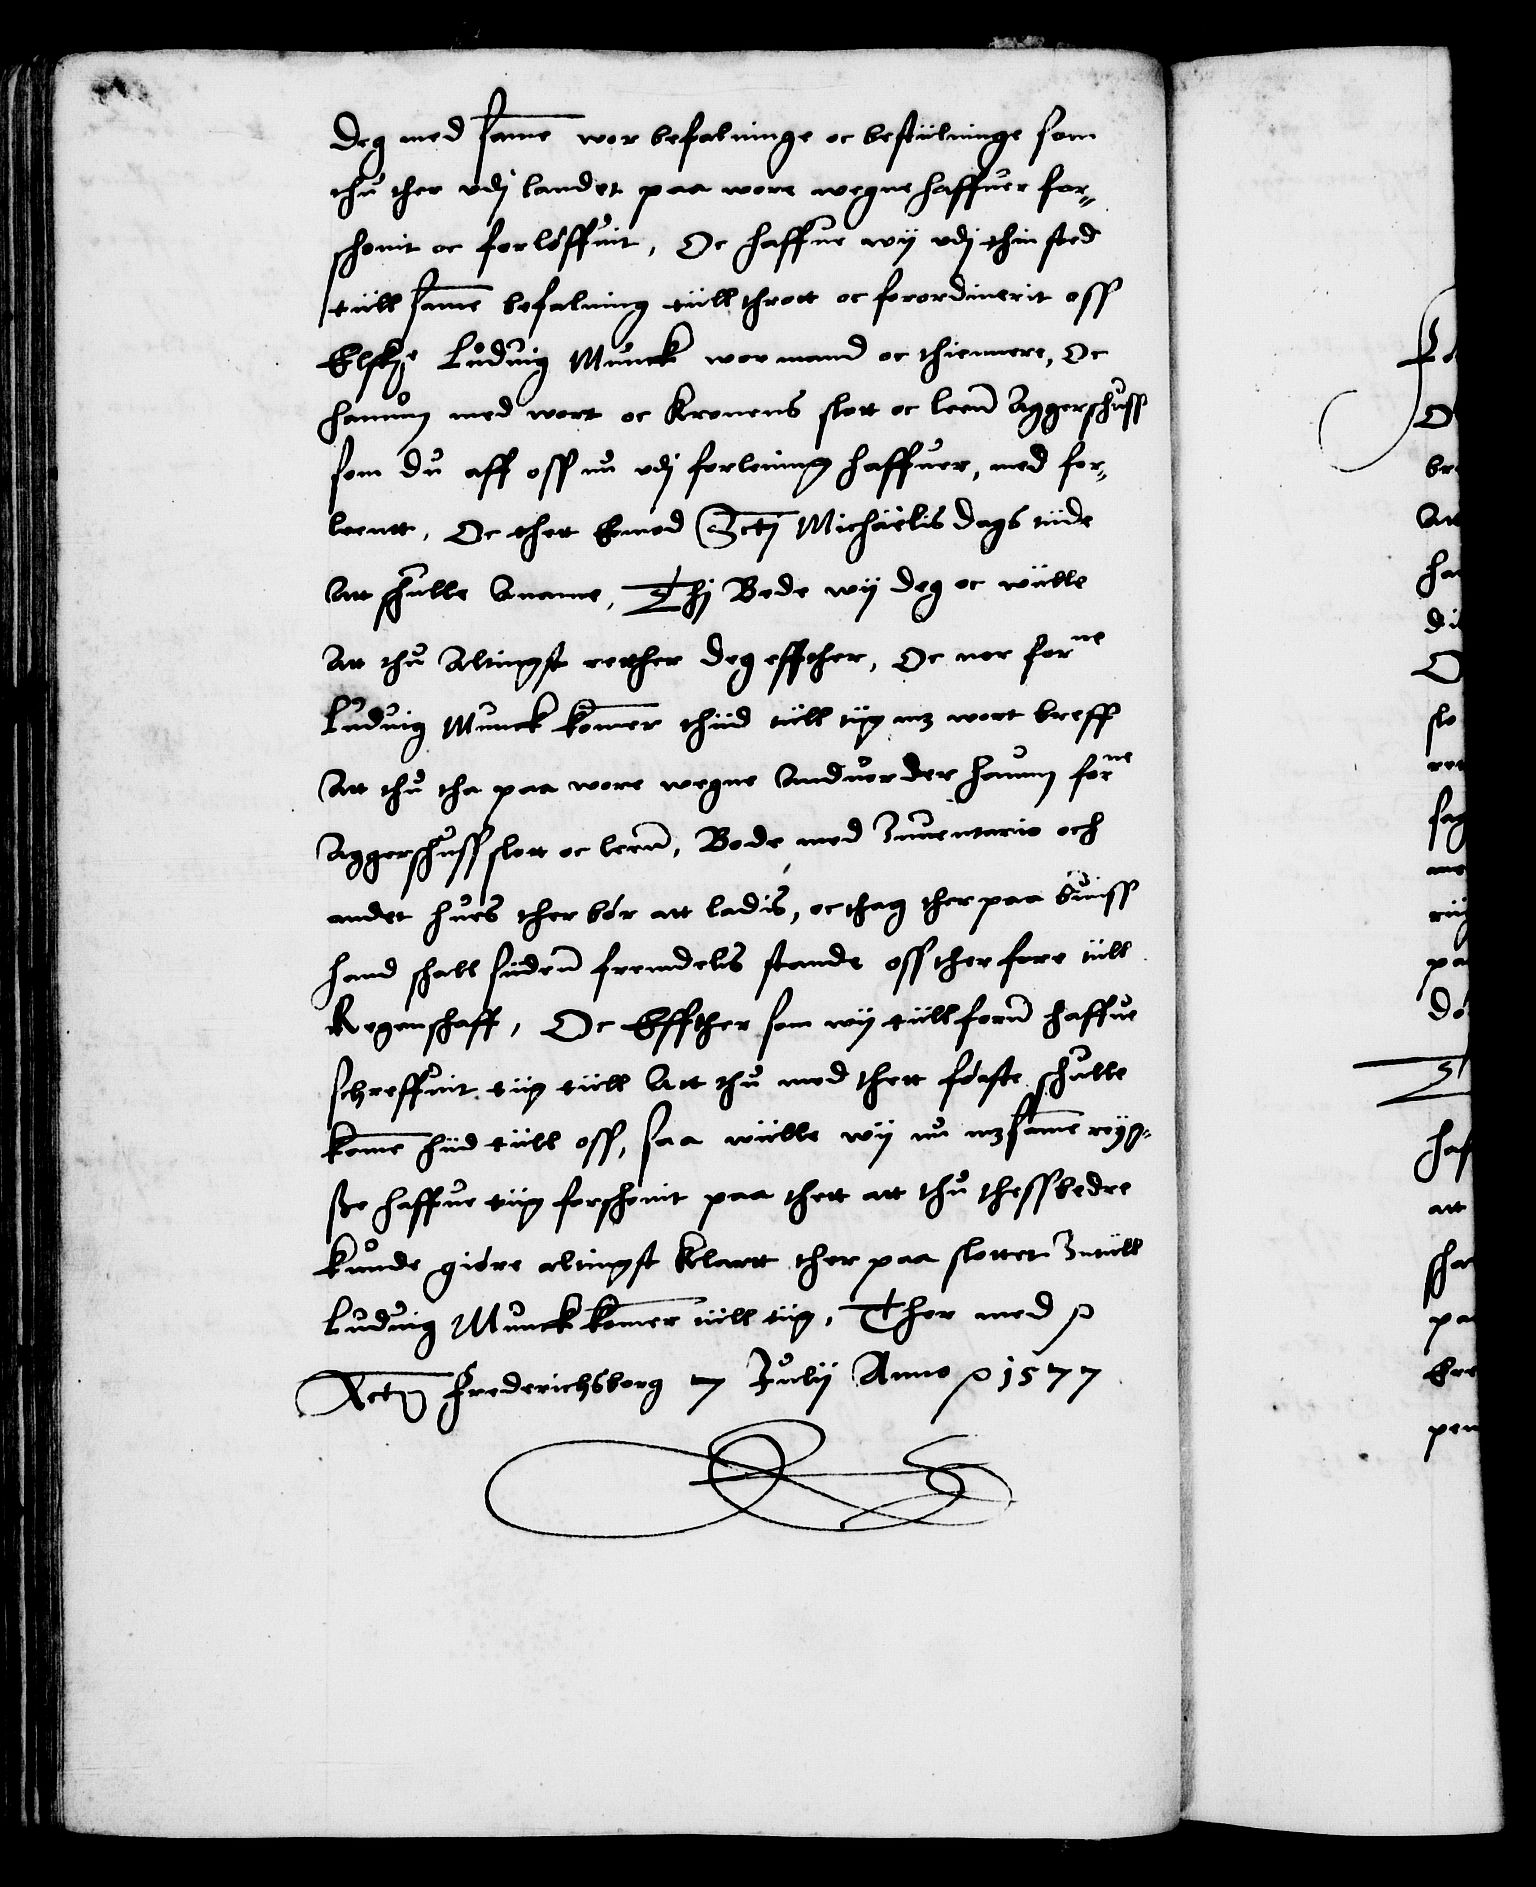 deg med same wor befalninge oc bestillninge som
thu ther vdj landet paa wore wegne haffuer for-
schonit oc forlöffuit, Oc haffue wij vdj thin sted
till same befalning till thrott oc forordinerit oss
Elske Luduig Munck wor mand oc thiennere, Oc
hannum med wort oc Kronens slott oc leen Aggerschuss
som du aff oss nu vdj forlening haffuer, med for-
leentt, Oc thett Emod Sctj Michaëlis dags tiide
Att schulle Aname, Thj Bede wij deg oc wiille
Att thu Altingst retther deg effther, Oc nor forne
Luduig Munck komer thiid till tiig mz wort breff
Att thu tha paa wore wegne Anduorder hanum forne
Aggerschuss slott oc leen, Bode med Inuentario och
andet hues ther bör att ladis, oc thag ther paa beuiss
hand schall siiden fremdelis stande oss ther fore till
Regenschaff, Oc Effther som wij till forn haffue
schreffuit tiig till Att thu med thett förste schulle
kome hiid till oss, saa wiille wij nu mz same reyg-
sse haffue tiig forschonit paa thett att thu thess bedre
kunde giöre altingst klartt ther paa slottet Intill
Luduig Munck komer till tiig, Ther med p
Actum Frederichsborg 7 Julij Anno p 1577